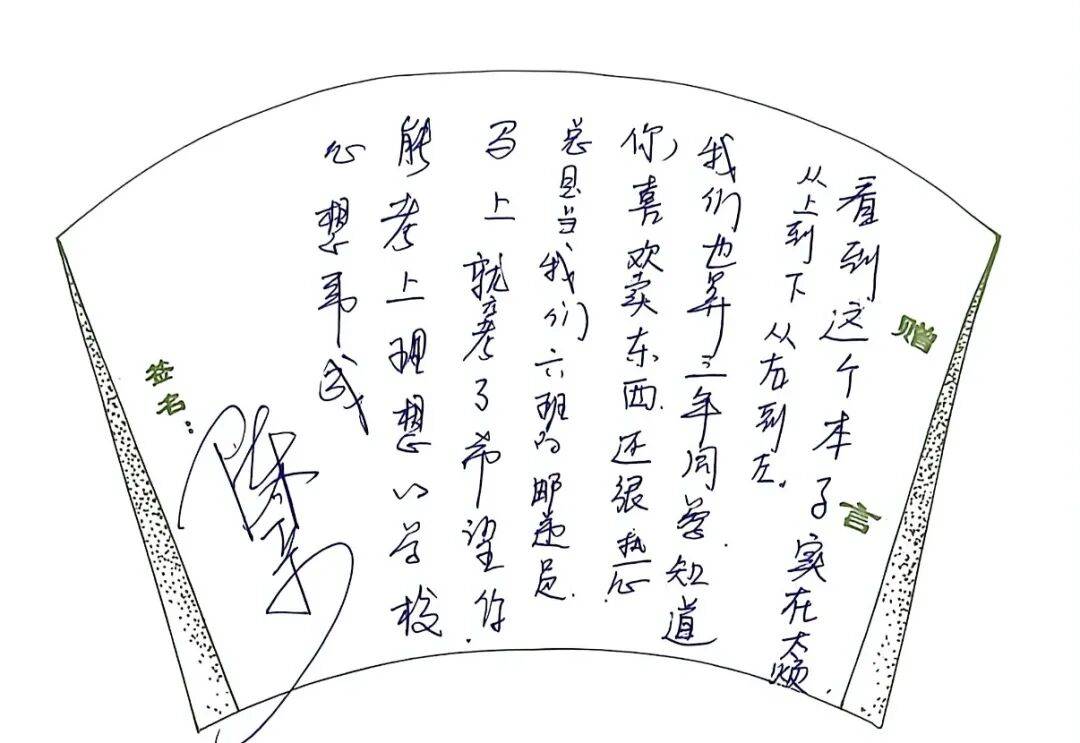 赠言
看到这个本子实在太烦.
从上到下 从右到左.
我们也算三年同学.知道
你,喜欢卖东西.还很热心
总是当我们六班的邮递员.
马上就考了希望你
能考上理想的学校.
心想事成
签名: